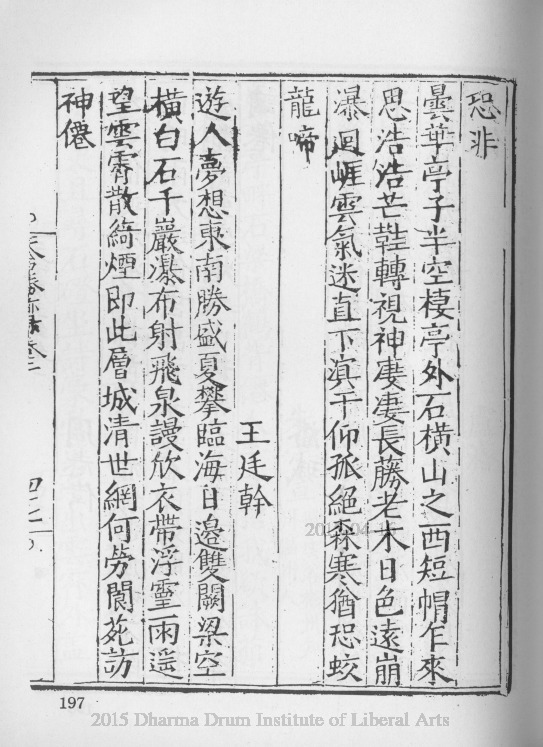 恐非
曇華亭子半空棲亭外石橫山之西短帽乍來
思浩浩芒鞋轉視神凄凄長藤老木日色遠崩
瀑迴崕雲氣迷直下滇干仰孤絕森寒猶恐蛟
龍啼
王廷幹
遊人夢想東南勝盛夏攀臨海日邊雙闕梁空
橫白石千巖瀑布射飛泉謾欣衣帶浮靈雨遥
望雲霄散綺煙即此層城清世網何勞閬苑訪
神僊
197
2015 Dharma Drum Institute of Liberal Arts